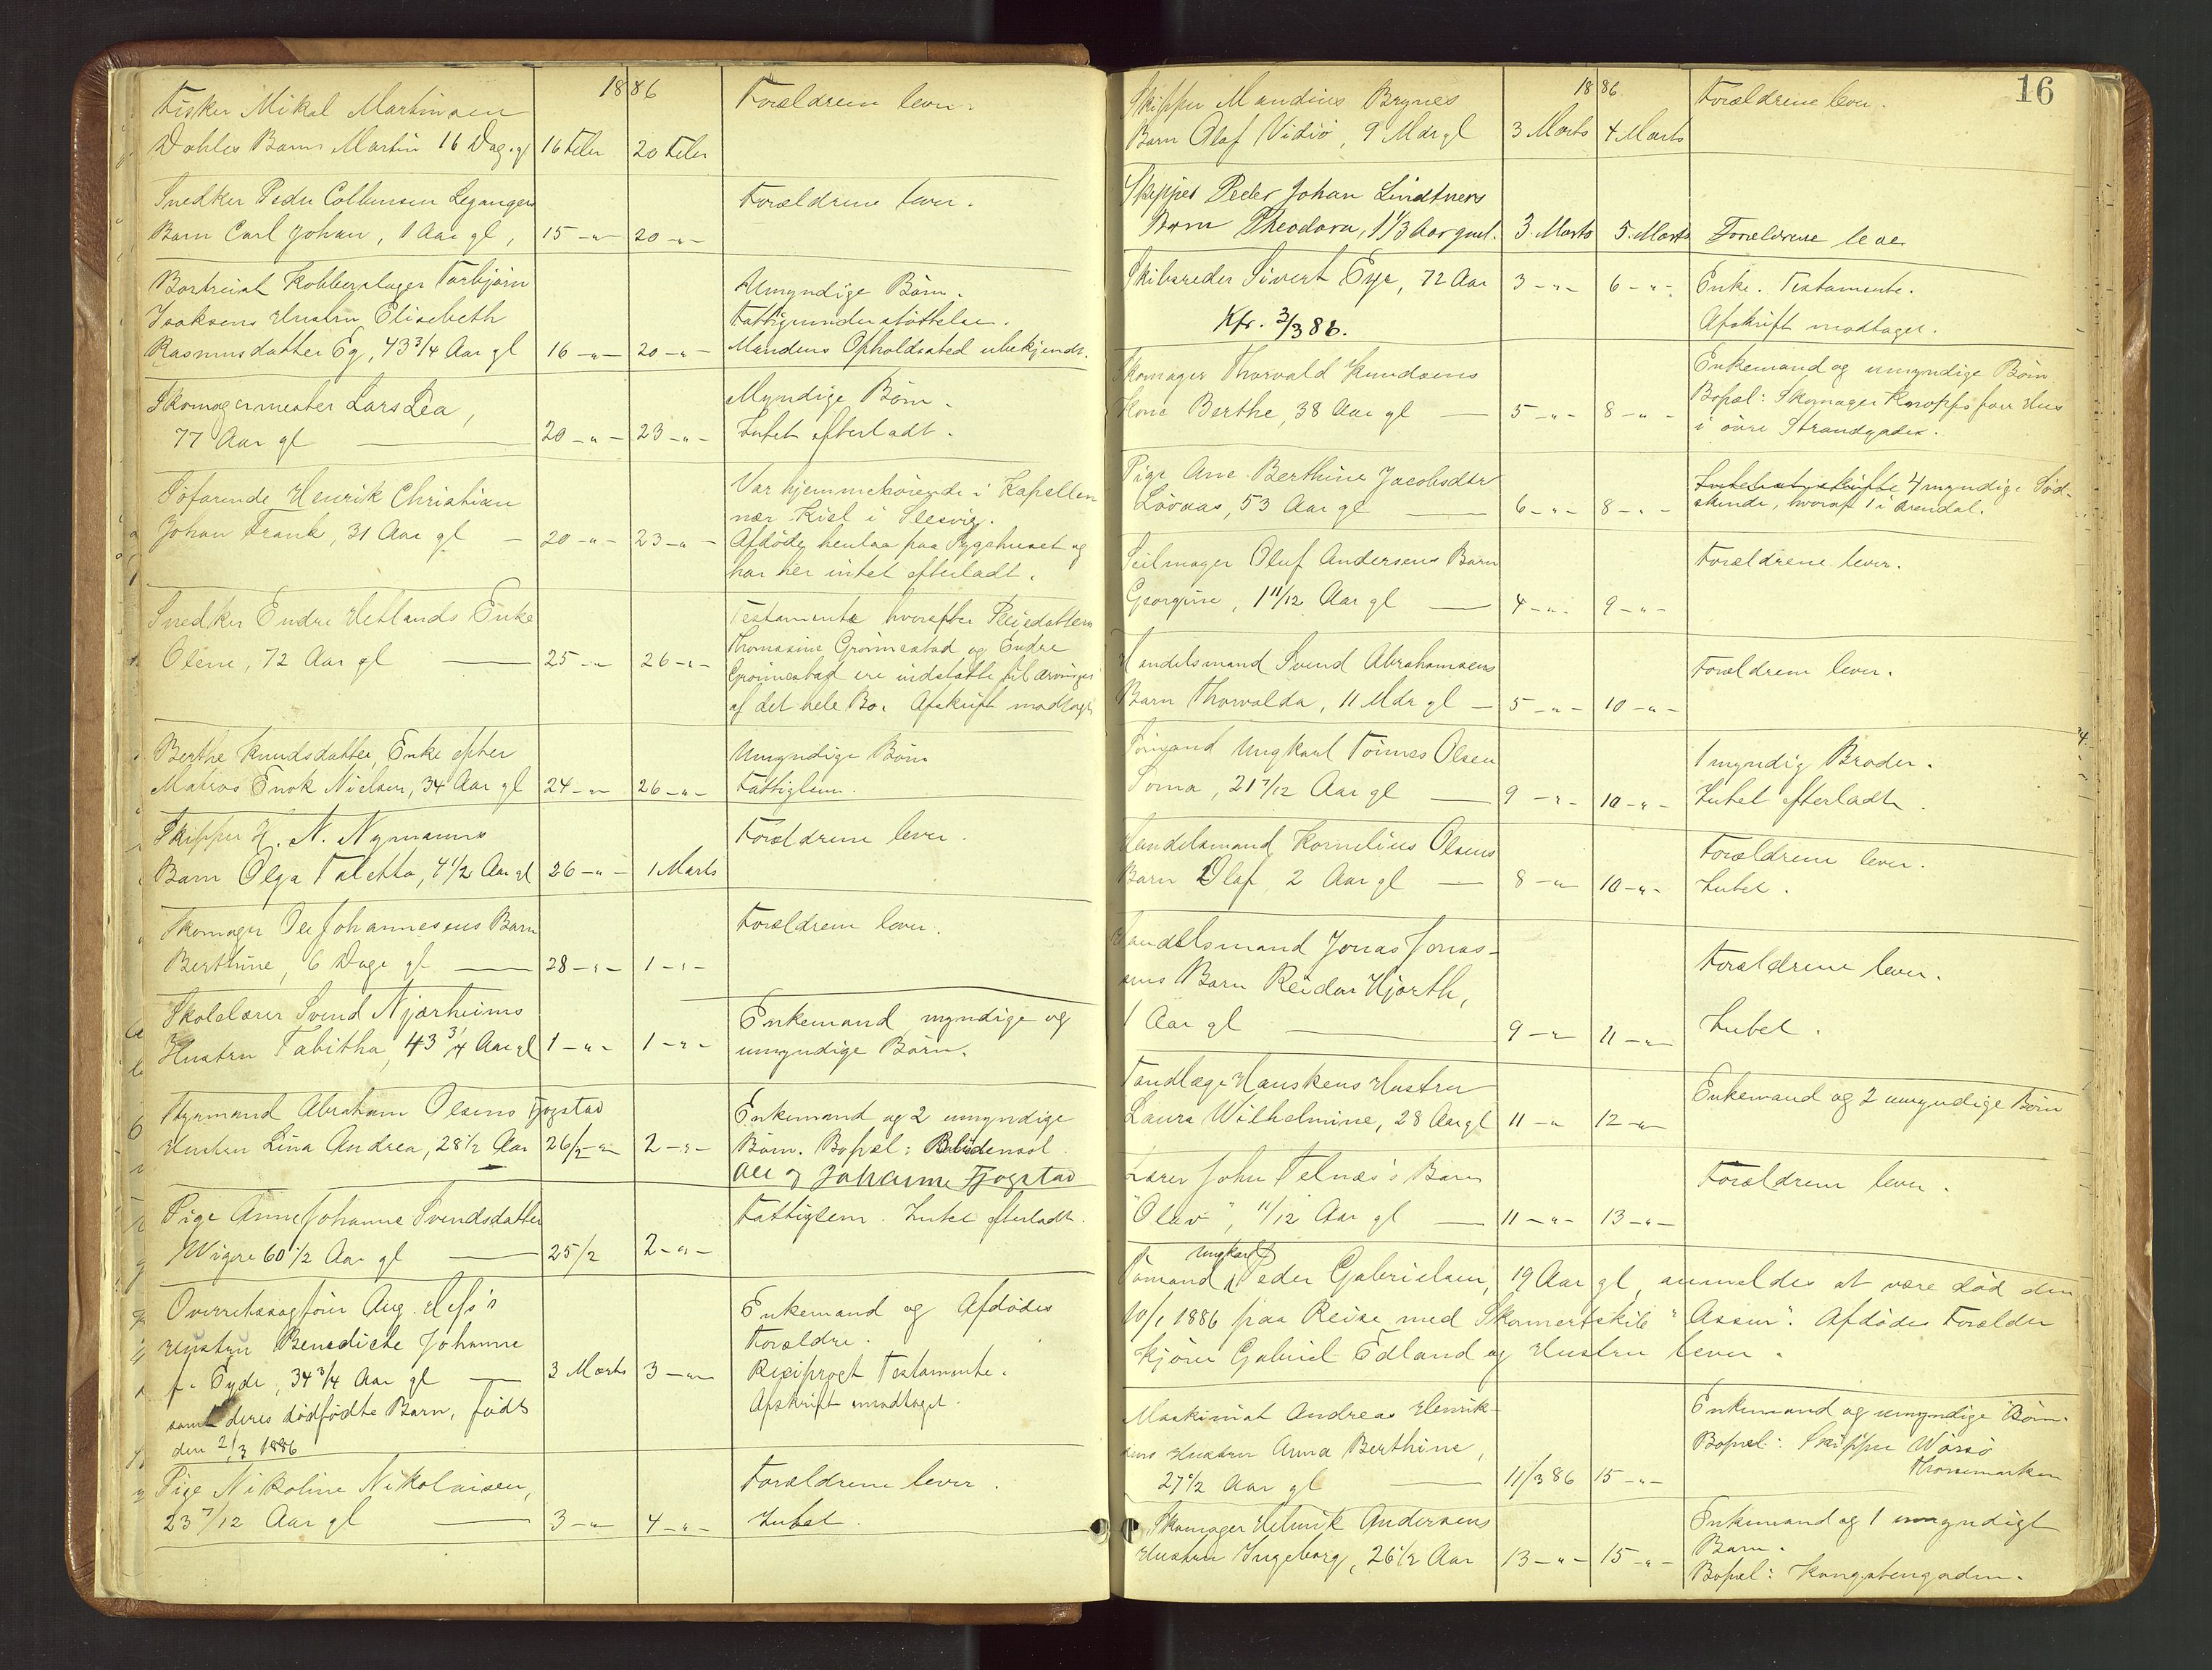 1886
Fisker Mikal Martinsen Forældrene lever.
Dahles Barn Martin 16 Dag. gl 16 Febr 20 Febr
Snedker Peder Colbensen Leganger Forældrene lever.
Barn Carl Johan, 1 Aar gl, 15 -"- 20 -"-
Bortreist Kobberslager Torbjørn Umyndige Børn.
Isaksens Hustru Elisebeth Fattigunderstøttelse.
Rasmusdatter Eg, 43 3/4 Aar gl 16 -"- 20 -"- Mandens Opholdssted ubekjendt.
Skomagermester Lars Lea, Myndige Børn.
77 Aar gl — 20 -"- 23 -"- Intet efterladt.
Søfarende Henrik Christian Var hjemmehørende i Kapellen
nær Kiel i Slesvig.
Johan Frank, 31 Aar gl - 20 -"- 23 -"- Afdøde henlaa paa Sygehuset og
har her intet efterladt.
Snedker Endre Hetlands Enke Testamente hvorefter Pleiedatteren
Olene, 72 Aar gl — 25 -"- 26 -"- Thomasine Grønnestad og Endre
Grønnestad ere indsatte til Arvinger
af det hele Bo. Afskrift modtaget
Berthe Knudsdatter, Enke efter Umyndige Børn
Matros Enok Nielsen, 34 Aar gl 24 -"- 26 -"- Fattiglem.
Skipper H. N. Nymanns Forældrene lever.
Barn Olga Taletta, 4 1/2 Aar gl 26 -"- 1 Marts
Skomager Ole Johannesens Barn Forældrene lever.
Berthine, 6 Dage gl — 28 -"- 1 -"-
Skolelærer Svend Njærheims Enkemand, myndige og
Hustru Tabitha, 43 3/4 Aar gl 1 -"- 1 -"- umyndige Børn.
Styrmand Abraham Olsens Fjogstad Enkemand og 2 umyndige
Hustru Lina Andrea, 28 1/2 Aar 26/2 -"- 2 -"- Børn. Bopæl:
Ole og Johanne Fjogstad
Pige Anne Johanne Svendsdatter Fattiglem. Intet efterladt.
Wigre 60 1/2 Aar gl — 25/2 2 -"-
Overretssagfører Aug. Hess's Enkemand og Afdødes
Hustru Benedicte Johanne Forældre.
f. Eyde, 34 3/4 Aar gl — 3 Marts 3 -"- Resiprogt Testamente.
samt deres dødfødte Barn, født Afskrift modtaget.
den 2/3 1886
Pige Nikoline Nikolaisen, Forældrene lever.
23 7/12 Aar gl — 3 -"- 4 -"- Intet.
16
1886
Skipper Mandius Brynes Forældrene lever.
Barn Olaf Vidiø, 9 Mdr gl 3 Marts 4 Marts
Skipper Peder Johan Lindtners
Barn Theodora, 1 1/3 Aar gml. 3. Marts 5. Marts Forældrene lever
Skibsreder Sivert Eye, 72 Aar 3 -"- 6 -"- Enke. Testamente.
Kfr. 3/3 86. Afskrift modtaget.
Skomager Thorvald Knudsens Enkemand og umyndige Børn
Kone Berthe, 38 Aar gl — 5 -"- 8 -"- Bopæl: Skomager Kroppfoss Hus
i øvre Strandgade.
Pige Ane Berthine Jacobsdtr 4 myndige Sød-
Lövaas, 53 Aar gl — 6 -"- 8 -"- skende, hvoraf 1 i Arendal.
Seilmager Oluf Andersens Barn Forældrene lever.
Georgine, 1 11/12 Aar gl — 4 -"- 9 -"-
Handelsmand Svend Abrahamsens Forældrene lever.
Barn Thorvalda, 11 Mdr gl — 5 -"- 10 -"-
Sømand Ungkarl Tønnes Olsen 1 myndig Broder.
Soma, 21 7/12 Aar gl — 9 -"- 10 -"- Intet efterladt.
Handelsmand Kornelius Olsens Forældrene lever.
Barn Olaf, 2 Aar gl — 8 -"- 10 -"- Intet.
Handelsmand Jonas Jonas-
sens Barn Reidar Hjorth, Forældrene lever.
1 Aar gl — 9 -"- 11 -"- Intet.
Tandlæge Hanskens Hustru Enkemand og 2 umyndige Børn
Laura Wilhelmine, 28 Aar gl 11 -"- 12 -"-
Lærer John Telnæs's Barn Forældrene lever.
"Olav", 11/12 Aar gl — 11 -"- 13 -"-
Sømand Ungkarl Peder Gabrielsen, 19 Aar gl, anmeldes at være død den
10/1 1886 paa Reise med Skonnertskib "Assur". Afdødes Forældre
Kjører Gabriel Edland og Hustru lever.
Maskinist Andreas Henrik- Enkemand og umyndige Børn.
sens Hustru Anna Berthine, Bopæl: Skipper Worsø
27 1/2 Aar gl — 11/3 86 15 -"-
Skomager Henrik Andersens Enkemand og 1 umyndigt
Hustru Ingeborg, 26 1/2 Aar 13 -"- 15 -"- Barn.
Bopæl: Kongstengaden.